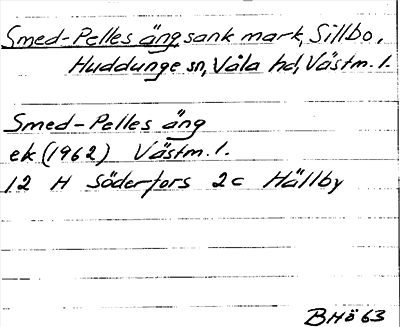 Smed-Pelles äng, sank mark, Sillbo,
Huddunge sn, Våla hd, Västm. l.
Smed-Pelles äng
ek (1962) Västm. l.
12 H Söderfors 2c Hällby
BHö 63